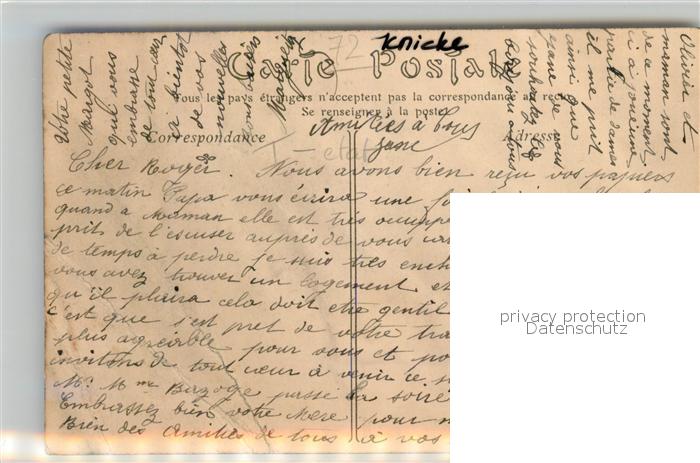 Knicke
72
Carte Postale
Tous les pays étrangers n'acceptent pas la correspondance au recto
Se renseigner à la poste
Correspondance
Adresse
Amitiés à tous
Jane
Cher Roger. Nous avons bien reçu vos papiers
ce matin Papa vous écrira une
quand a Maman elle est très occuppé
prit de l'escuser auprès de vous
de temps à perdre je suis tres
vous avez trouver un logement et
qu'il plaira cela doit etre gentil
c'est que s'est pret de votre
plus agréable pour vous et
invitons de tout cœur à venir ce
Mr Mme passé la soirée
Embrassez bien votre Mère pour
Bien des Amitiés de tous à vos
Votre petite
Margot
qui vous
embrasse
de tout cœur
a bientot
de vos
nouvelles
bons baisers
et
maman sont
de ce moment
ci à jouer
partie de dames
il me prit
ainsi que
Jane de vous
souhaitez le
bonjour a tous
privacy protection
Datenschutz